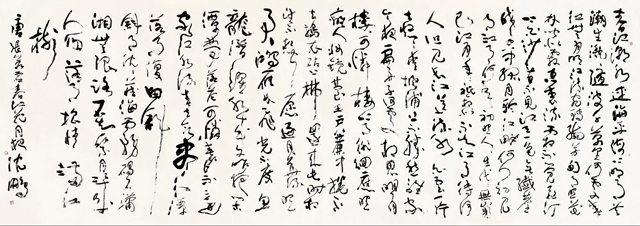 春江潮水連海平海上明月共
潮生灩灩隨波千萬里何處春
江無月明江流宛轉繞芳甸月照花
林皆似霰空裏流霜不覺飛汀
上白沙看不見江天一色無纖塵
皎皎空中孤月輪江畔何人初見
月江月何年初照人人生代代無窮
已江月年年祇相似不知江月待何
人但見長江送流水白雲一片
去悠悠青楓浦上不勝愁誰家
今夜扁舟子何處相思明月
樓可憐樓上月徘徊應照
離人妝鏡臺玉戶簾中捲不
去擣衣砧上拂還來此時相
望不相聞願逐月華流照
君鴻雁長飛光不度魚
龍潛躍水成文昨夜閑
潭夢落花可憐春半不還
家江水流春去欲盡江潭
落月復西斜
斜月沉沉藏海霧碣石瀟
湘無限路不知乘月幾
人歸落月搖情滿江
樹
唐張若虛春江花月夜 沈鵬